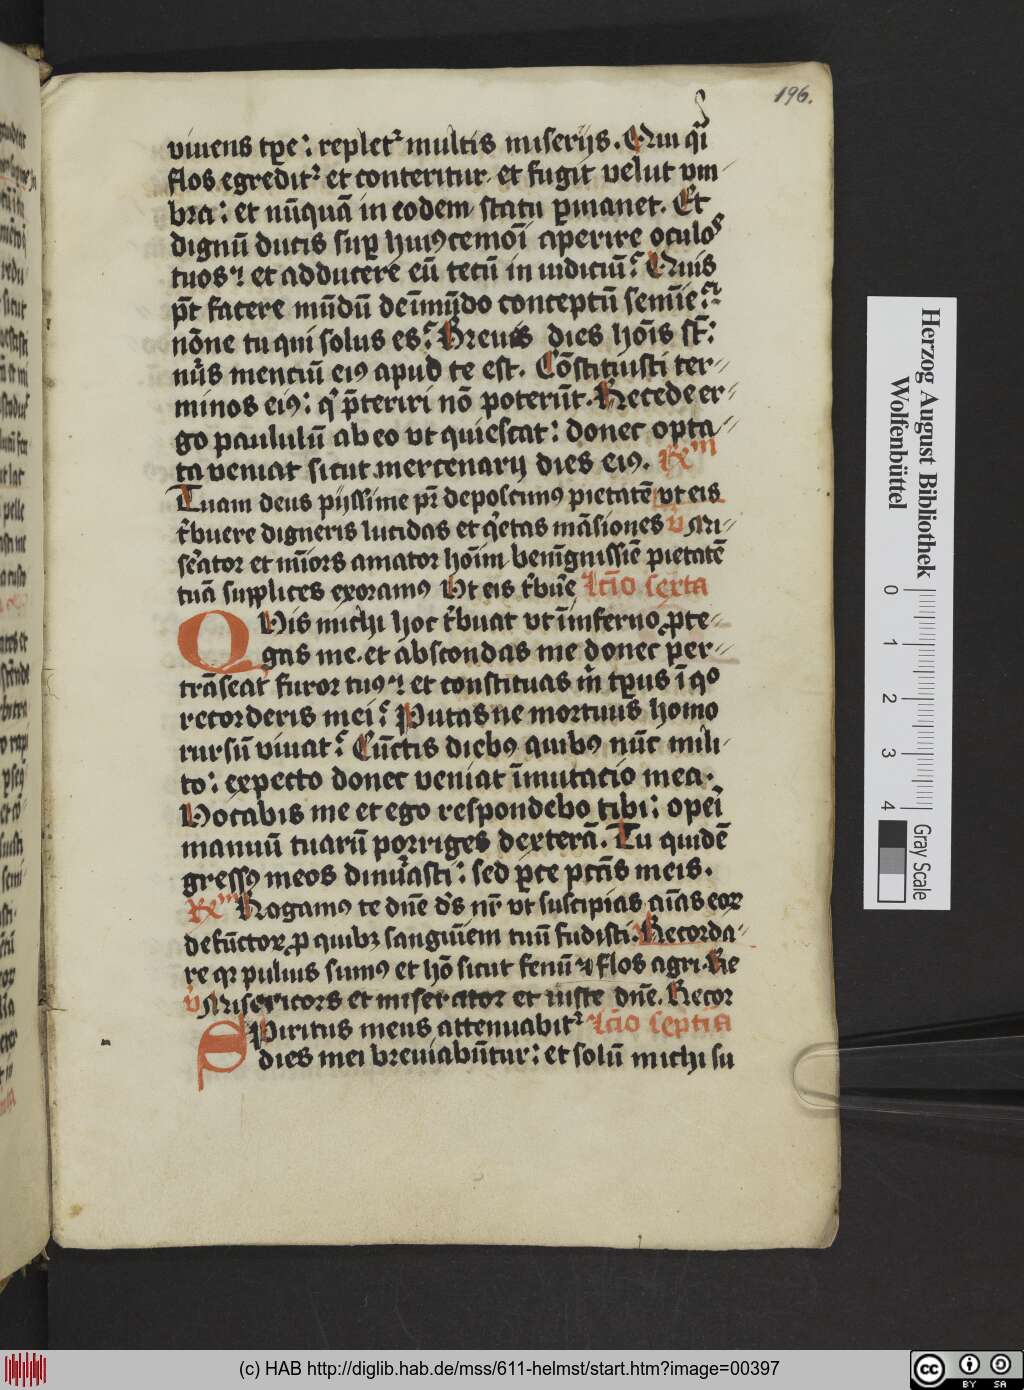 196.
viuens tp̄e: replet᷑ multis miserijs. Qui q̄i
flos egredit᷑ et conteritur et fugit velut vm-
bra: et nūquā in eodem statu p̱manet. Et
dignū ducis sup̱ huiꝰcemōi aperire oculoˢ
tuos? et adducere eū tecū in iudiciū? Quis
p̄t facere mūdū de īmūdo conceptū semīe?
nōne tu qui solus es? Breues dies hōis s̄t:
nūs mensiū eiꝰ apud te est. Cōstituisti ter-
minos eiꝰ: q̇ p̄teriri nō poterūt. Recede er-
go paululū ab eo vt quiescat: donec opta-
ta veniat sicut mercenarij dies eiꝰ. Rxᵐ
Tuam deus pijssime pr̄ deposcimꝰ pietatē vt eis
t̓buere digneris lucidas et q̓etas māsiones v̓ Mi-
sēator et mīors amator hōim benīgnissiē pietatē
tuā supplices exoramꝰ Vt eis t̓buē Lc̄io sexta
QVis michi hoc t̓buat vt in inferno p̱te-
gas me. et abscondas me donec per-
trāseat furor tuꝰ? et constituas m̓ tp̱us ī qo
recorderis mei? Putas ne mortuus homo
rursū viuat? Cūctis diebꝰ quibꝰ nūc mili-
to: expecto donec veniat īmutacio mea.
Vocabis me et ego respondebo tibi: opei̅
manuū tuarū porriges dexterā. Tu quidē
gressꝰ meos dinu̓asti: sed p̱ce pc̄tis meis.
Rxᵐ Rogamꝰ te dn̄e d̄s nr̄ vt suscipias aīas eoꝝ
defūctoꝝ p̱ quibꝫ sanguīem tuū fudisti. Recorda-
re qꝛ puluis sumꝰ et hō sicut fenū ⁊ flos agri. Re
v̓ Misericors et miserator et iuste dn̄e. Recor
SPiritus meus attenuabit᷑ Lc̄io septīa
dies mei breuiabūtur: et solū michi su
Herzog August Bibliothek
Wolfenbüttel
0 1 2 3 4
Gray Scale
(c) HAB http://diglib.hab.de/mss/611-helmst/start.htm?image=00397
cc BY SA